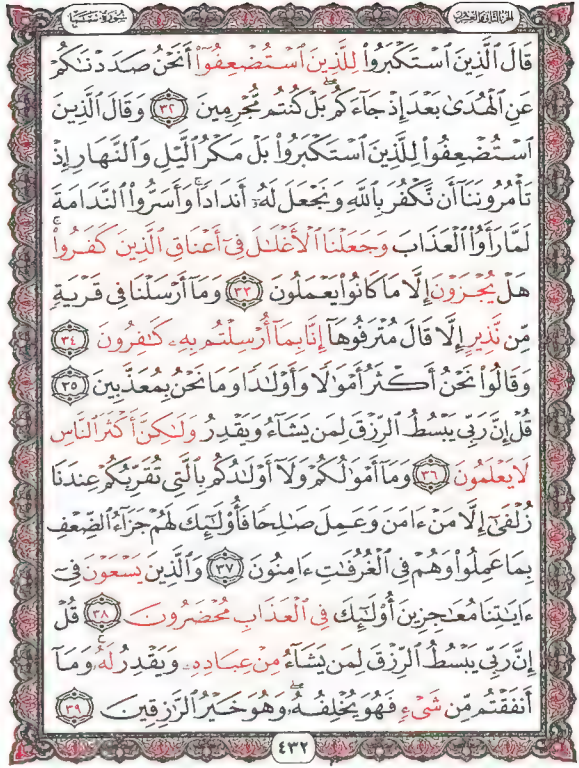 الجزء الثاني والعشرون
سورة سبأ
قَالَ ٱلَّذِينَ ٱسْتَكْبَرُوا۟ لِلَّذِينَ ٱسْتُضْعِفُوٓا۟ أَنَحْنُ صَدَدْنَٰكُمْ
عَنِ ٱلْهُدَىٰ بَعْدَ إِذْ جَآءَكُم ۖ بَلْ كُنتُم مُّجْرِمِينَ ٣٢ وَقَالَ ٱلَّذِينَ
ٱسْتُضْعِفُوا۟ لِلَّذِينَ ٱسْتَكْبَرُوا۟ بَلْ مَكْرُ ٱلَّيْلِ وَٱلنَّهَارِ إِذْ
تَأْمُرُونَنَآ أَن نَّكْفُرَ بِٱللَّهِ وَنَجْعَلَ لَهُۥٓ أَندَادًا ۚ وَأَسَرُّوا۟ ٱلنَّدَامَةَ
لَمَّا رَأَوُا۟ ٱلْعَذَابَ وَجَعَلْنَا ٱلْأَغْلَٰلَ فِىٓ أَعْنَاقِ ٱلَّذِينَ كَفَرُوا۟ ۚ
هَلْ يُجْزَوْنَ إِلَّا مَا كَانُوا۟ يَعْمَلُونَ ٣٣ وَمَآ أَرْسَلْنَا فِى قَرْيَةٍ
مِّن نَّذِيرٍ إِلَّا قَالَ مُتْرَفُوهَآ إِنَّا بِمَآ أُرْسِلْتُم بِهِۦ كَٰفِرُونَ ٣٤
وَقَالُوا۟ نَحْنُ أَكْثَرُ أَمْوَٰلًا وَأَوْلَٰدًا وَمَا نَحْنُ بِمُعَذَّبِينَ ٣٥
قُلْ إِنَّ رَبِّى يَبْسُطُ ٱلرِّزْقَ لِمَن يَشَآءُ وَيَقْدِرُ وَلَٰكِنَّ أَكْثَرَ ٱلنَّاسِ
لَا يَعْلَمُونَ ٣٦ وَمَآ أَمْوَٰلُكُمْ وَلَآ أَوْلَٰدُكُم بِٱلَّتِى تُقَرِّبُكُمْ عِندَنَا
زُلْفَىٰٓ إِلَّا مَنْ ءَامَنَ وَعَمِلَ صَٰلِحًا فَأُو۟لَٰٓئِكَ لَهُمْ جَزَآءُ ٱلضِّعْفِ
بِمَا عَمِلُوا۟ وَهُمْ فِى ٱلْغُرُفَٰتِ ءَامِنُونَ ٣٧ وَٱلَّذِينَ يَسْعَوْنَ فِىٓ
ءَايَٰتِنَا مُعَٰجِزِينَ أُو۟لَٰٓئِكَ فِى ٱلْعَذَابِ مُحْضَرُونَ ٣٨ قُلْ
إِنَّ رَبِّى يَبْسُطُ ٱلرِّزْقَ لِمَن يَشَآءُ مِنْ عِبَادِهِۦ وَيَقْدِرُ لَهُۥ ۚ وَمَآ
أَنفَقْتُم مِّن شَىْءٍ فَهُوَ يُخْلِفُهُۥ ۖ وَهُوَ خَيْرُ ٱلرَّٰزِقِينَ ٣٩
٤٣٢